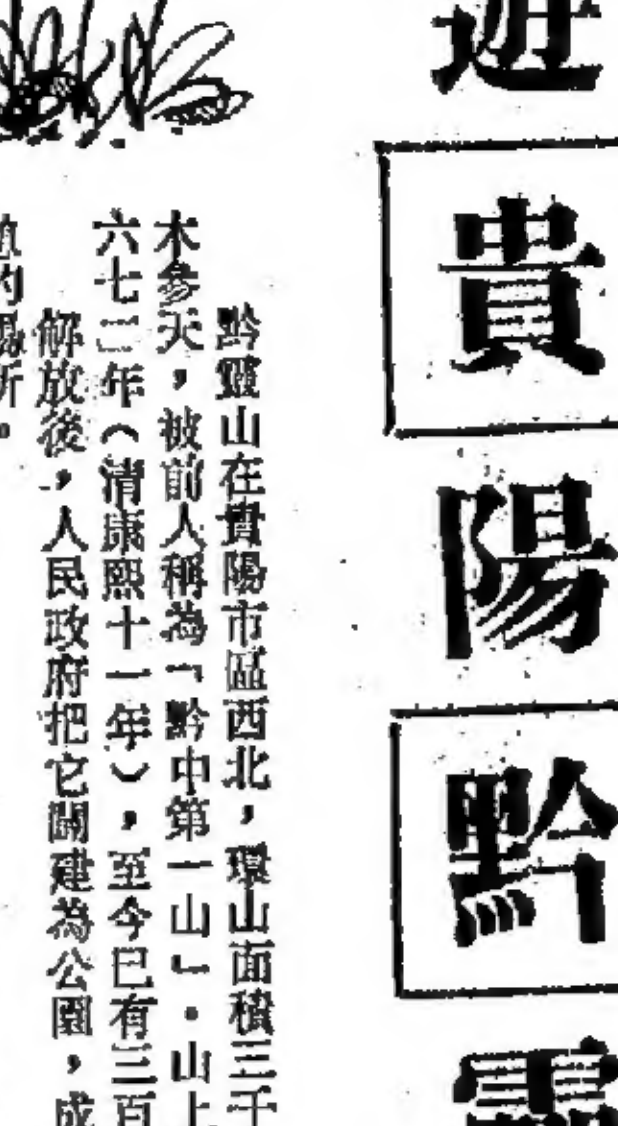 遊貴陽黔靈
黔靈山在貴陽市區西北，環山面積三千
木參天，被前人稱為「黔中第一山」。山上
六七二年（清康熙十一年），至今已有三百
解放後，人民政府把它闢建為公園，成
的場所。